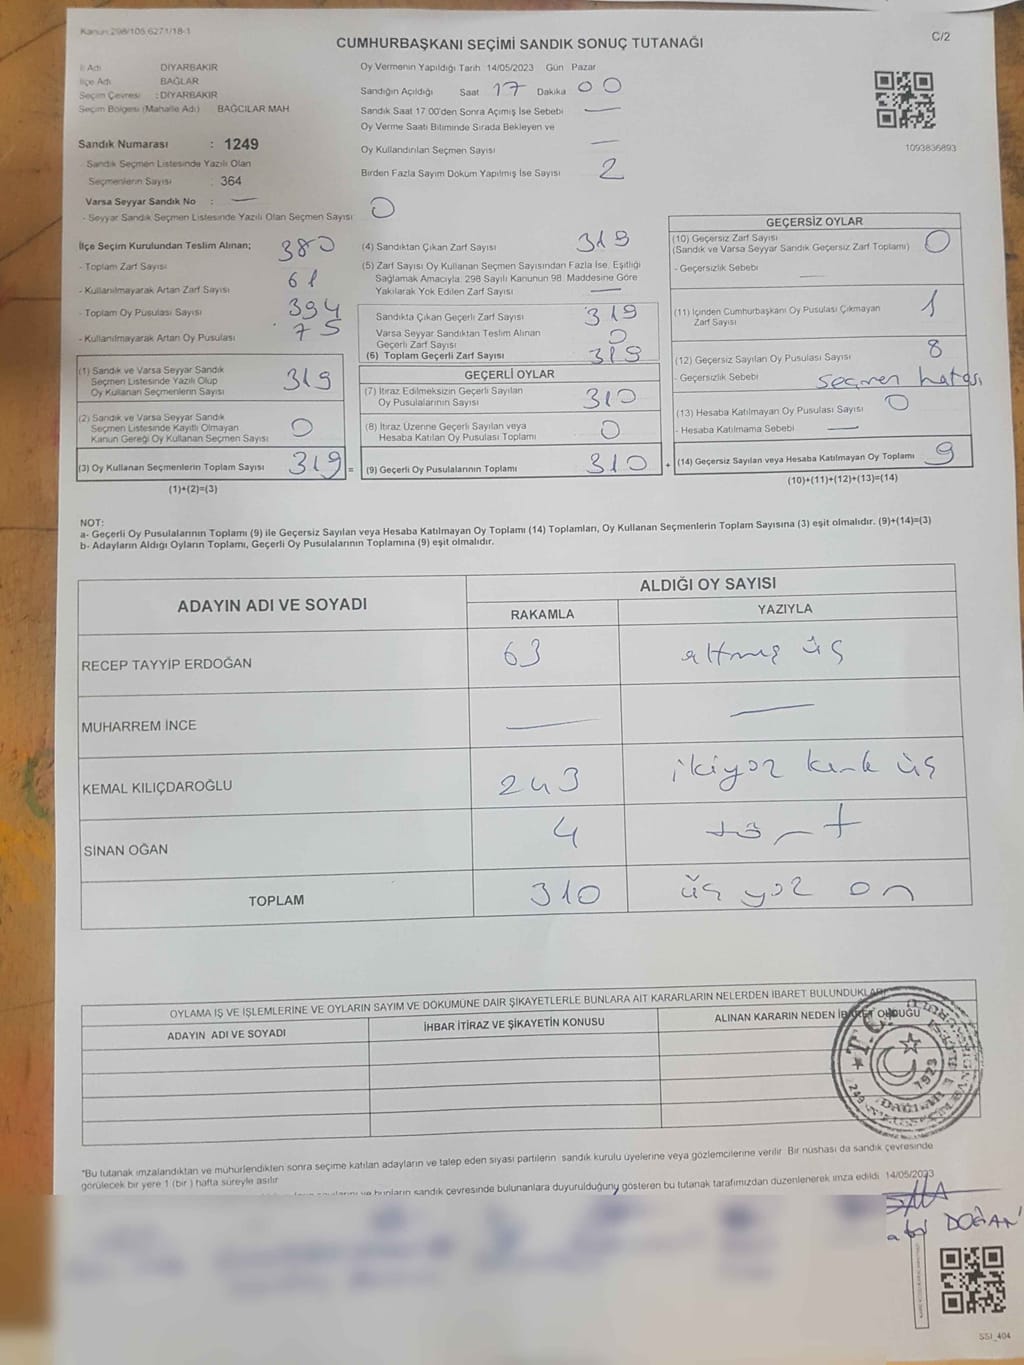 Kanun:298/105,6271/18-1
CUMHURBAŞKANI SEÇİMİ SANDIK SONUÇ TUTANAĞI
C/2
İl Adı DİYARBAKIR
İlçe Adı BAĞLAR
Seçim Çevresi : DİYARBAKIR
Seçim Bölgesi (Mahalle Adı) BAĞCILAR MAH.
Sandık Numarası : 1249
- Sandık Seçmen Listesinde Yazılı Olan
Seçmenlerin Sayısı : 364
Varsa Seyyar Sandık No : —
- Seyyar Sandık Seçmen Listesinde Yazılı Olan Seçmen Sayısı 0
Oy Vermenin Yapıldığı Tarih 14/05/2023 Gün Pazar
Sandığın Açıldığı Saat 17 Dakika 00
Sandık Saat 17:00'den Sonra Açımış İse Sebebi —
Oy Verme Saati Bitiminde Sırada Bekleyen ve
Oy Kullandırılan Seçmen Sayısı —
Birden Fazla Sayım Döküm Yapılmış İse Sayısı 2
1093836893
İlçe Seçim Kurulundan Teslim Alınan;
- Toplam Zarf Sayısı 380
- Kullanılmayarak Artan Zarf Sayısı 61
- Toplam Oy Pusulası Sayısı 394
- Kullanılmayarak Artan Oy Pusulası 75
(1) Sandık ve Varsa Seyyar Sandık
Seçmen Listesinde Yazılı Olup
Oy Kullanan Seçmenlerin Sayısı 319
(2) Sandık ve Varsa Seyyar Sandık
Seçmen Listesinde Kayıtlı Olmayan
Kanun Gereği Oy Kullanan Seçmen Sayısı 0
(3) Oy Kullanan Seçmenlerin Toplam Sayısı 319 =
(1)+(2)=(3)
(4) Sandıktan Çıkan Zarf Sayısı 319
(5) Zarf Sayısı Oy Kullanan Seçmen Sayısından Fazla İse, Eşitliği
Sağlamak Amacıyla, 298 Sayılı Kanunun 98. Maddesine Göre
Yakılarak Yok Edilen Zarf Sayısı —
Sandıkta Çıkan Geçerli Zarf Sayısı 319
Varsa Seyyar Sandıktan Teslim Alınan
Geçerli Zarf Sayısı 0
(6) Toplam Geçerli Zarf Sayısı 319
GEÇERLİ OYLAR
(7) İtiraz Edilmeksizin Geçerli Sayılan
Oy Pusulalarının Sayısı 310
(8) İtiraz Üzerine Geçerli Sayılan veya
Hesaba Katılan Oy Pusulası Toplamı 0
(9) Geçerli Oy Pusulalarının Toplamı 310 +
GEÇERSİZ OYLAR
(10) Geçersiz Zarf Sayısı 0
(Sandık ve Varsa Seyyar Sandık Geçersiz Zarf Toplamı)
- Geçersizlik Sebebi —
(11) İçinden Cumhurbaşkanı Oy Pusulası Çıkmayan
Zarf Sayısı 1
(12) Geçersiz Sayılan Oy Pusulası Sayısı 8
- Geçersizlik Sebebi seçmen hatası
(13) Hesaba Katılmayan Oy Pusulası Sayısı 0
- Hesaba Katılmama Sebebi —
(14) Geçersiz Sayılan veya Hesaba Katılmayan Oy Toplamı 9
(10)+(11)+(12)+(13)=(14)
NOT:
a- Geçerli Oy Pusulalarının Toplamı (9) ile Geçersiz Sayılan veya Hesaba Katılmayan Oy Toplamı (14) Toplamları, Oy Kullanan Seçmenlerin Toplam Sayısına (3) eşit olmalıdır. (9)+(14)=(3)
b- Adayların Aldığı Oyların Toplamı, Geçerli Oy Pusulalarının Toplamına (9) eşit olmalıdır.
ADAYIN ADI VE SOYADI
ALDIĞI OY SAYISI
RAKAMLA YAZIYLA
RECEP TAYYİP ERDOĞAN 63 altmış üç
MUHARREM İNCE — —
KEMAL KILIÇDAROĞLU 243 ikiyoz kırk üç
SİNAN OĞAN 4 tört
TOPLAM 310 üç yoz on
OYLAMA İŞ VE İŞLEMLERİNE VE OYLARIN SAYIM VE DÖKÜMÜNE DAİR ŞİKAYETLERLE BUNLARA AİT KARARLARIN NELERDEN İBARET BULUNDUKLARI
ADAYIN ADI VE SOYADI
İHBAR İTİRAZ VE ŞİKAYETİN KONUSU
ALINAN KARARIN NEDEN İBARET OLDUĞU
T.C.
1923
BAĞLAR
*Bu tutanak imzalandıktan ve mühürlendikten sonra seçime katılan adayların ve talep eden siyasi partilerin sandık kurulu üyelerine veya gözlemcilerine verilir. Bir nüshası da sandık çevresinde
görülecek bir yere 1 (bir ) hafta süreyle asılır
bunların sandık çevresinde bulunanlara duyurulduğunu gösteren bu tutanak tarafımızdan düzenlenerek imza edildi. 14/05/2023
DOĞAN
SSI_404